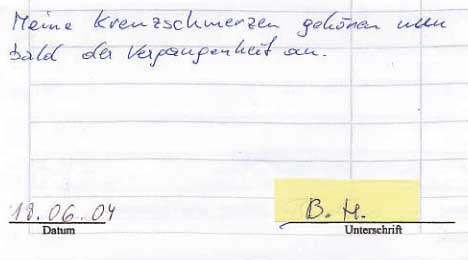 Meine Kreuzschmerzen gehören nun
bald der Vergangenheit an.
18.06.04 B. H.
Datum Unterschrift